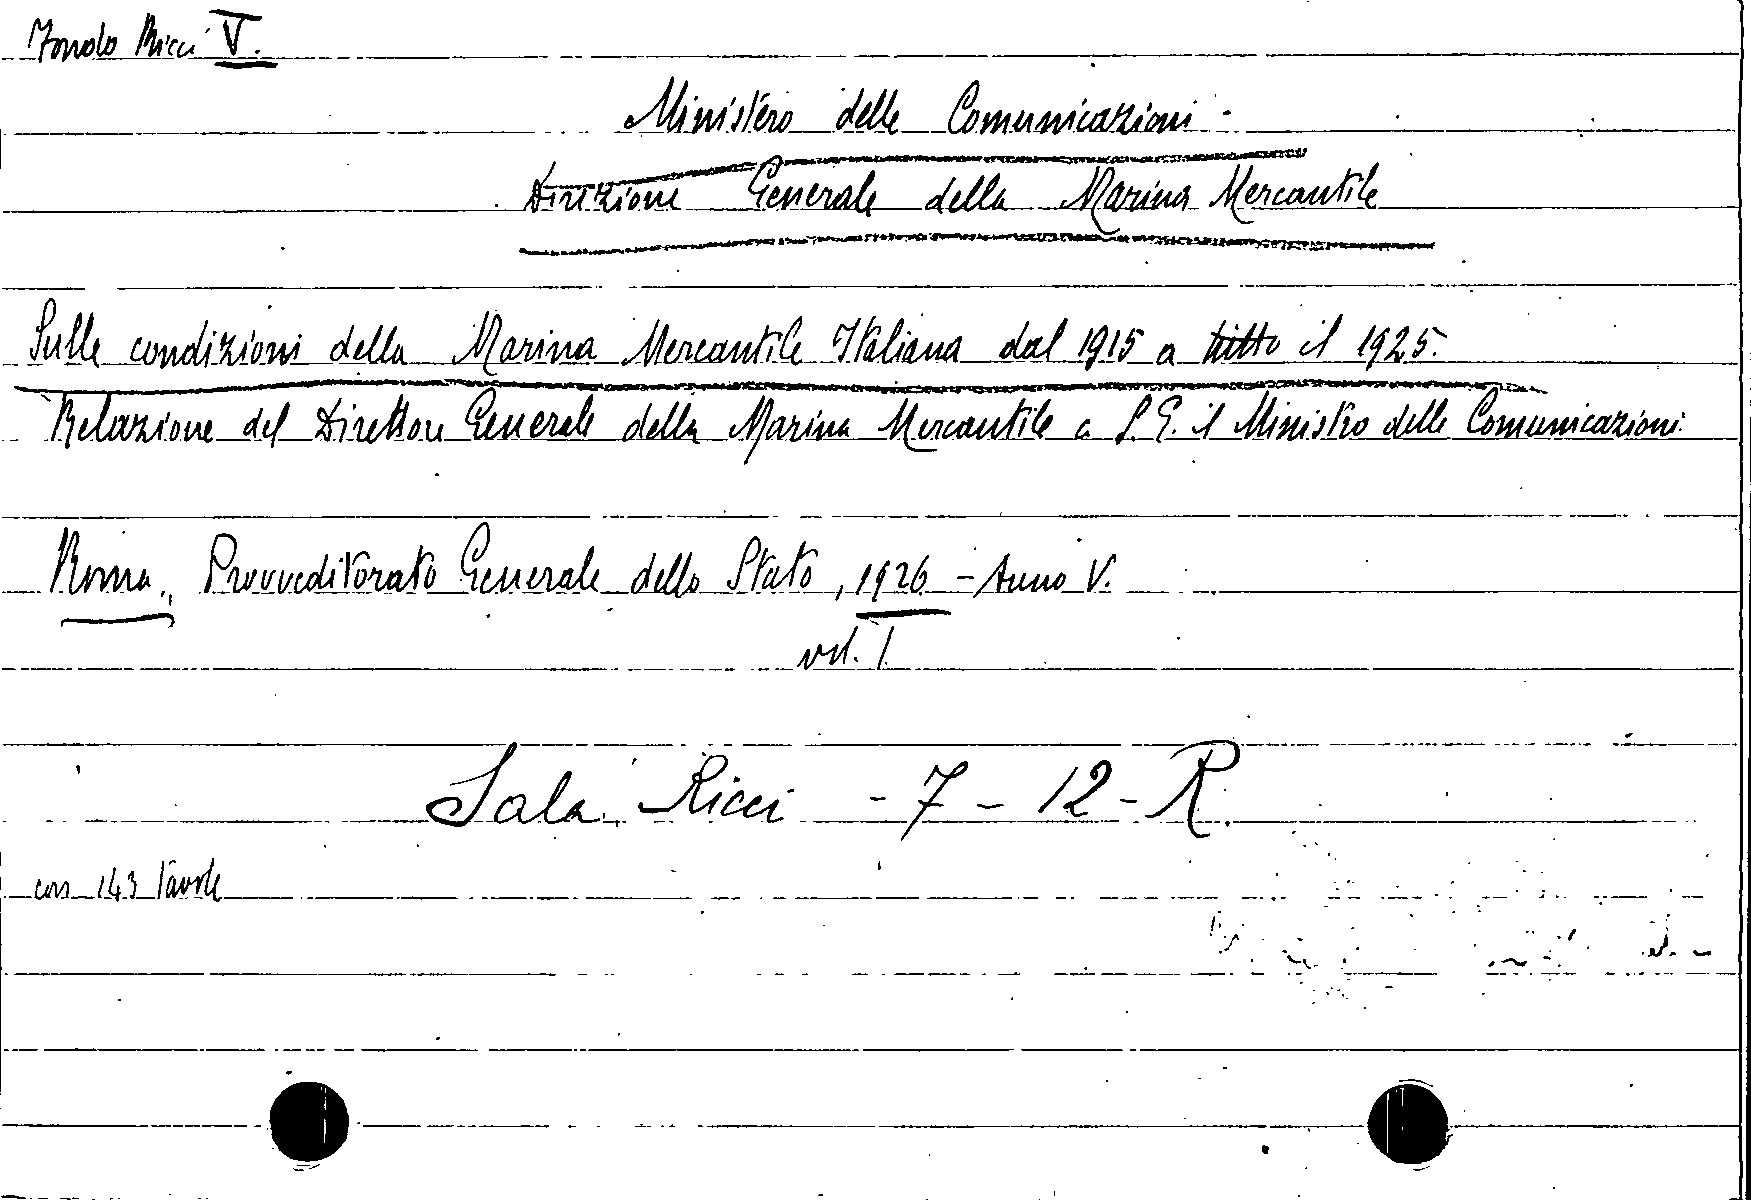 Fondo Ricci V.
Ministero delle Comunicazioni -
Direzione Generale della Marina Mercantile
Sulle condizioni della Marina Mercantile Italiana dal 1915 a tutto il 1925.
Relazione del Direttore Generale della Marina Mercantile a S. E. il Ministro delle Comunicazioni
Roma, Provveditorato Generale dello Stato, 1926 - Anno V.
vol. I
Sala Ricci - 7 - 12 - R.
con 143 tavole